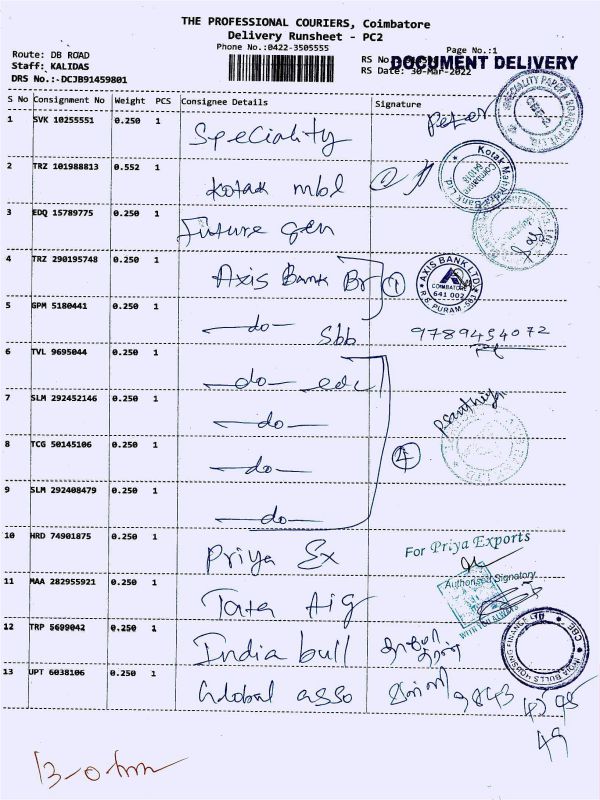 THE PROFESSIONAL COURIERS, Coimbatore
Delivery Runsheet - PC2
Phone No.:0422-3505555
Page No.:1
Route: DB ROAD
RS No
DOCUMENT DELIVERY
Staff: KALIDAS
RS Date: 30-Mar-2022
DRS No.:-DCJB91459801
S No Consignment No Weight PCS Consignee Details Signature
1 SVK 10255551 0.250 1 Speciality Peter
2 TRZ 101988813 0.552 1 Kotak mbl
Kotak Mahindra Bank Ltd
Coimbatore
641018
3 EDQ 15789775 0.250 1 Future gen
4 TRZ 290195748 0.250 1 Axis Bank Br 1
AXIS BANK LTD
COIMBATORE
641 002
R.S. PURAM
5 GPM 5180441 0.250 1 -do- Sbb 9789454072
6 TVL 9695044 0.250 1 -do- edc
7 SLM 292452146 0.250 1 -do-
8 TCG 50145106 0.250 1 -do- 4
9 SLM 292408479 0.250 1 -do-
10 HRD 74901875 0.250 1 Priya Ex
For Priya Exports
Authorised Signatory
11 MAA 282955921 0.250 1 Tata Aig
12 TRP 5699042 0.250 1 India bull
INDIA BULLS HOUSING FINANCE LTD
CBE
13 UPT 6038106 0.250 1 Global asso 9843